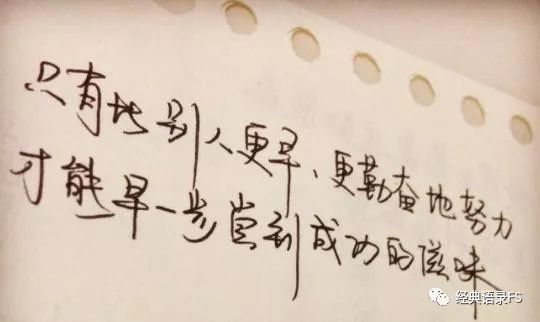 只有比别人更早、更勤奋地努力
才能早一步尝到成功的滋味
经典语录FS